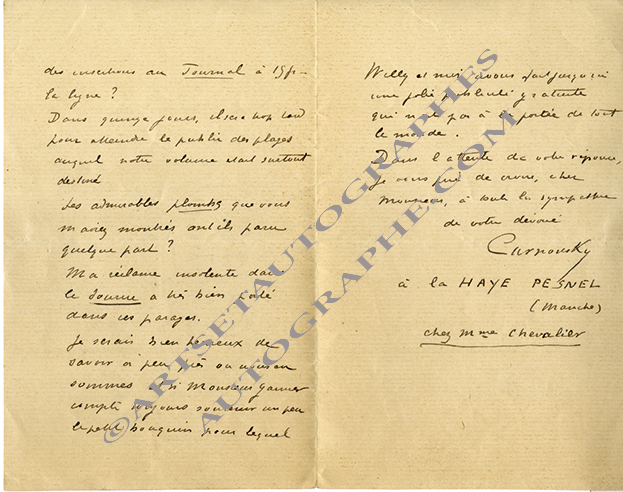 des insertions au Journal à 15 fr
la ligne ?
Dans quinze jours, il sera trop tard
pour atteindre le public des plages
auquel notre volume était surtout
destiné
Les admirables plombs que vous
m'aviez montrés ont ils paru
quelque part ?
Ma réclame insolente dans
le Journal a très bien porté
dans ces parages.
Je serais bien heureux de
savoir à peu près où nous en
sommes et si Monsieur Garnier
compte toujours soutenir un peu
le petit bouquin pour lequel
Willy et moi avons fait jusqu'ici
une jolie publicité gratuite
qui n'est pas à la portée de tout
le monde.
Dans l'attente de votre réponse,
je vous prie de croire, cher
Monsieur, à toute la sympathie
de votre dévoué
Curnonsky
à la HAYE PESNEL
(Manche)
chez Mme Chevalier
©ARTSETAUTOGRAPHES
AUTOGRAPHE.COM